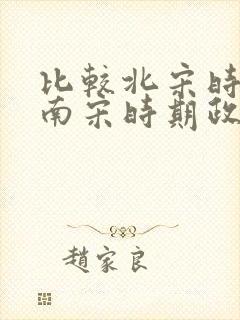 比較北宋時
南宋時期政
趙家良